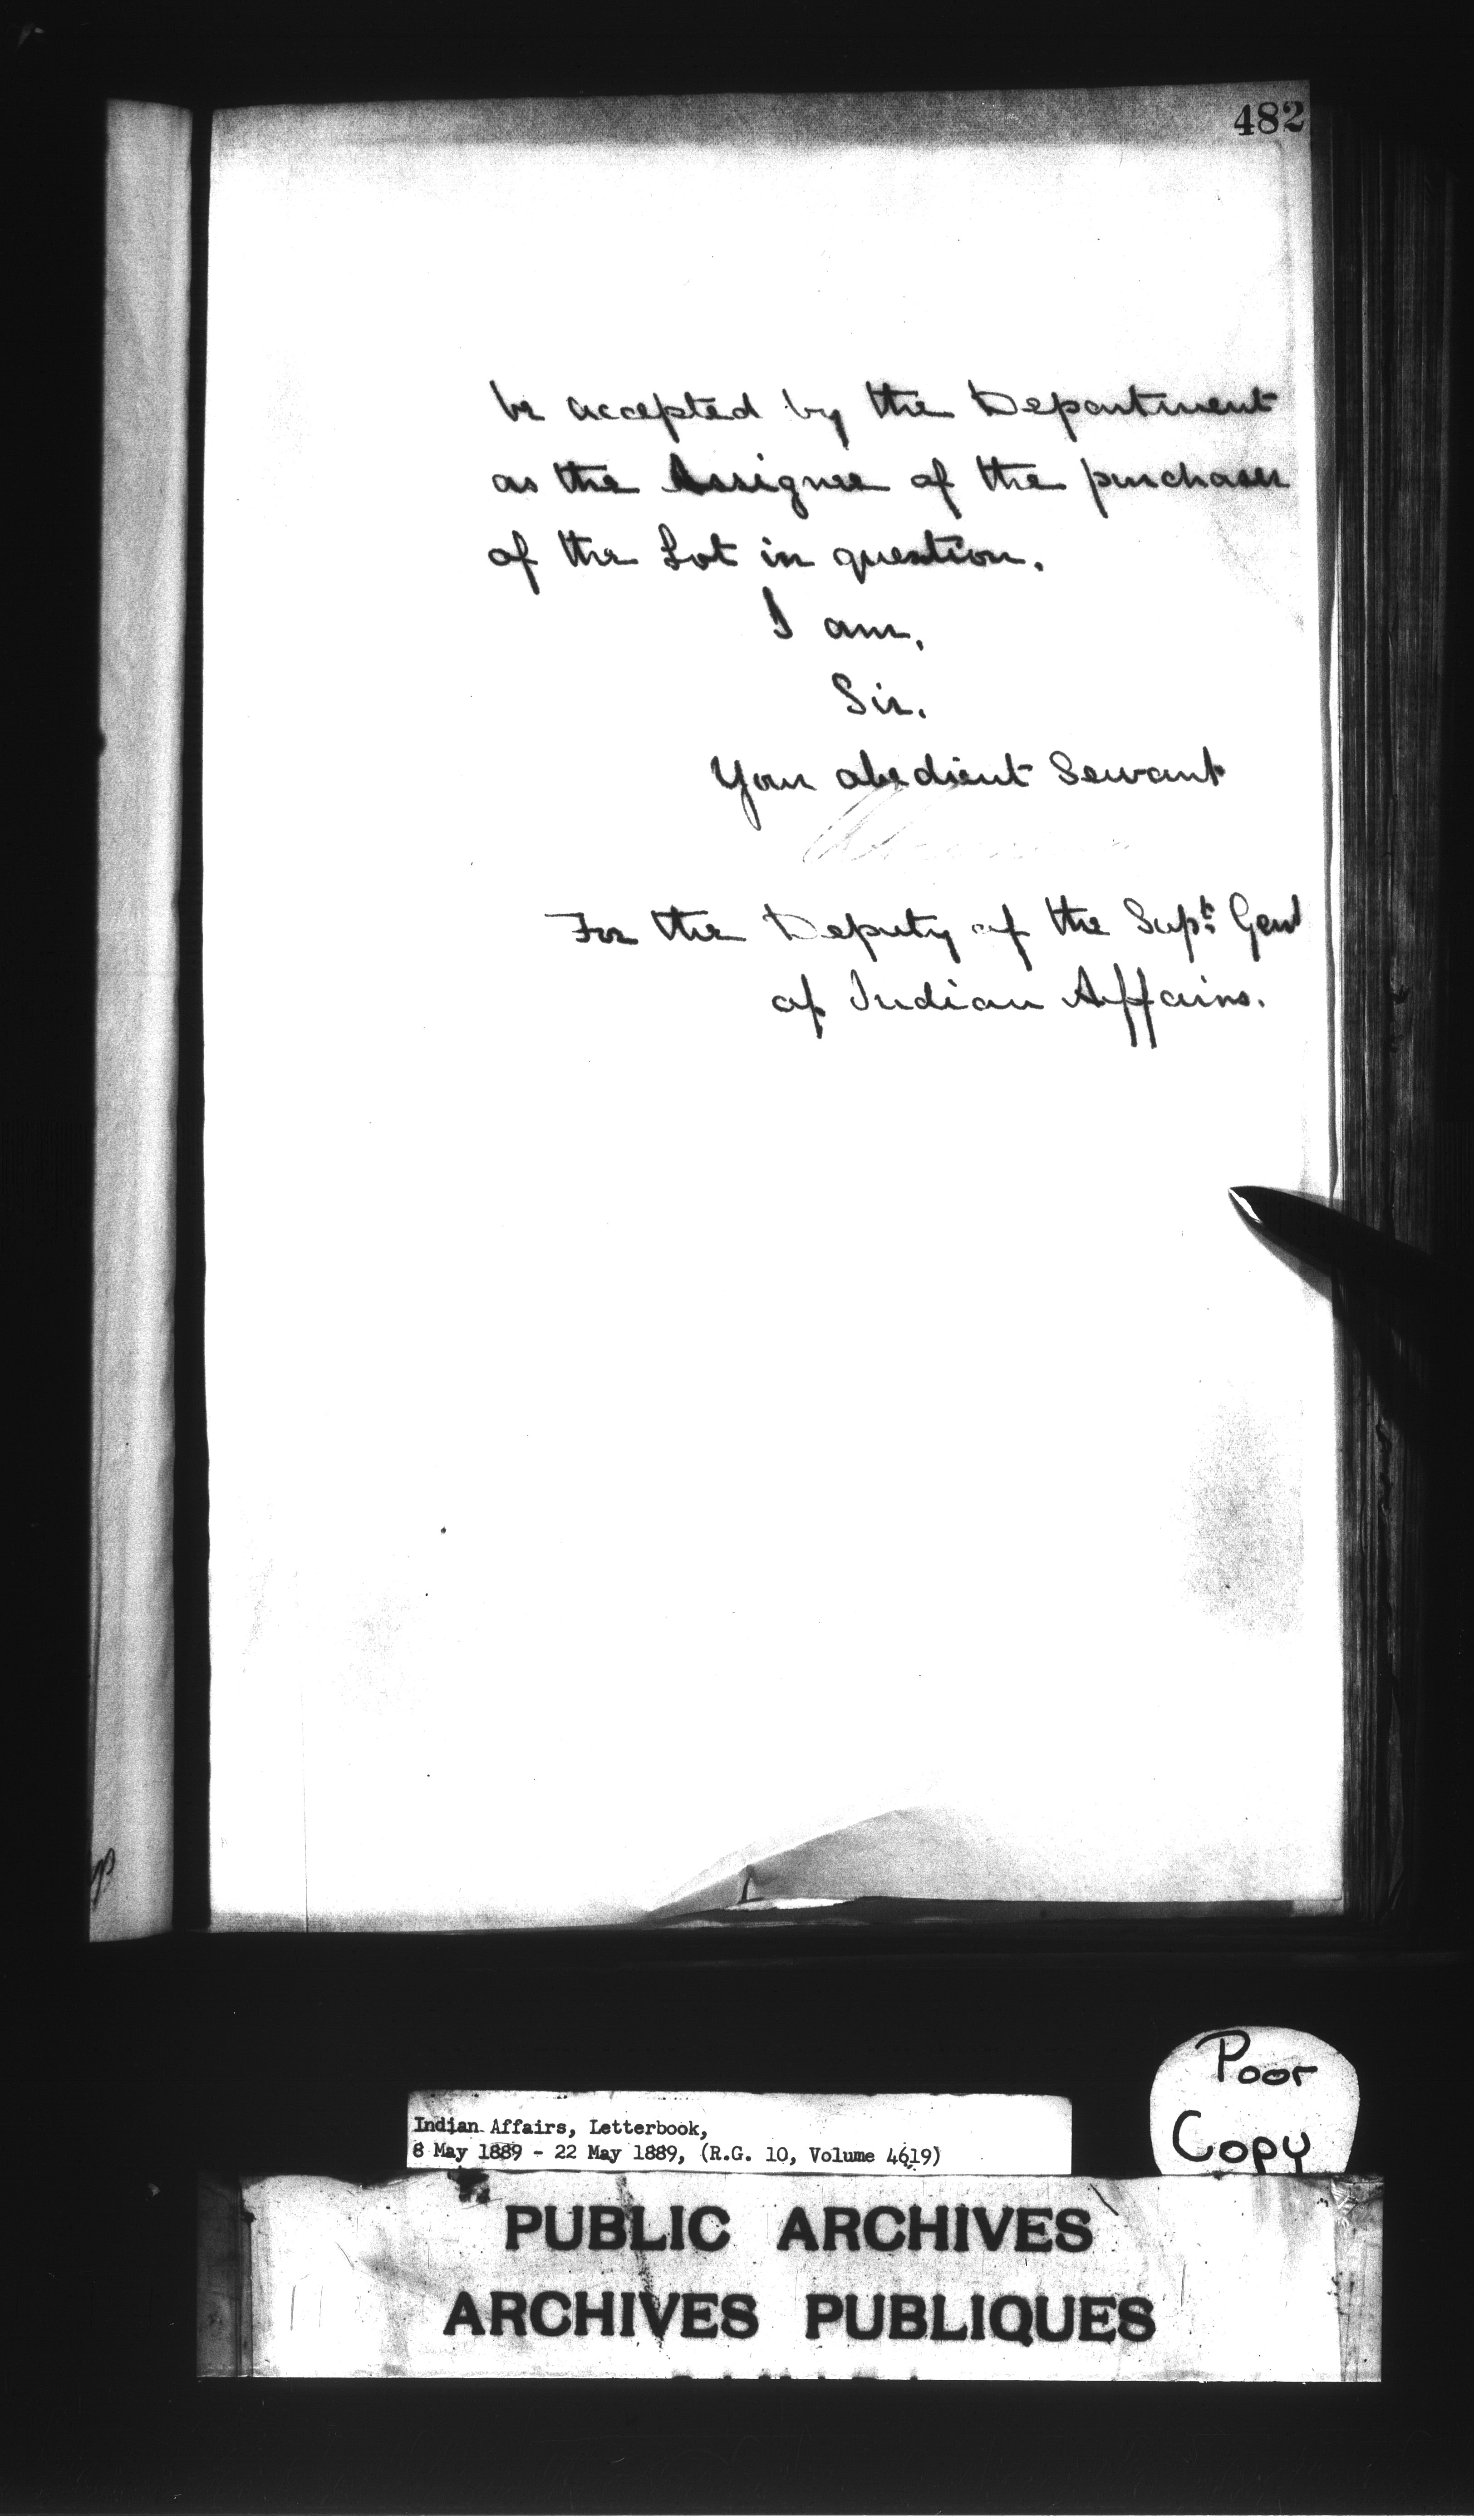 482
be accepted by the Department
as the Assignee of the purchaser
of the Lot in question.
I am,
Sir,
Your obedient Servant
For the Deputy of the Supt. Genl
of Indian Affairs.
Poor
Copy
Indian Affairs, Letterbook,
8 May 1889 - 22 May 1889, (R.G. 10, Volume 4619)
PUBLIC ARCHIVES
ARCHIVES PUBLIQUES